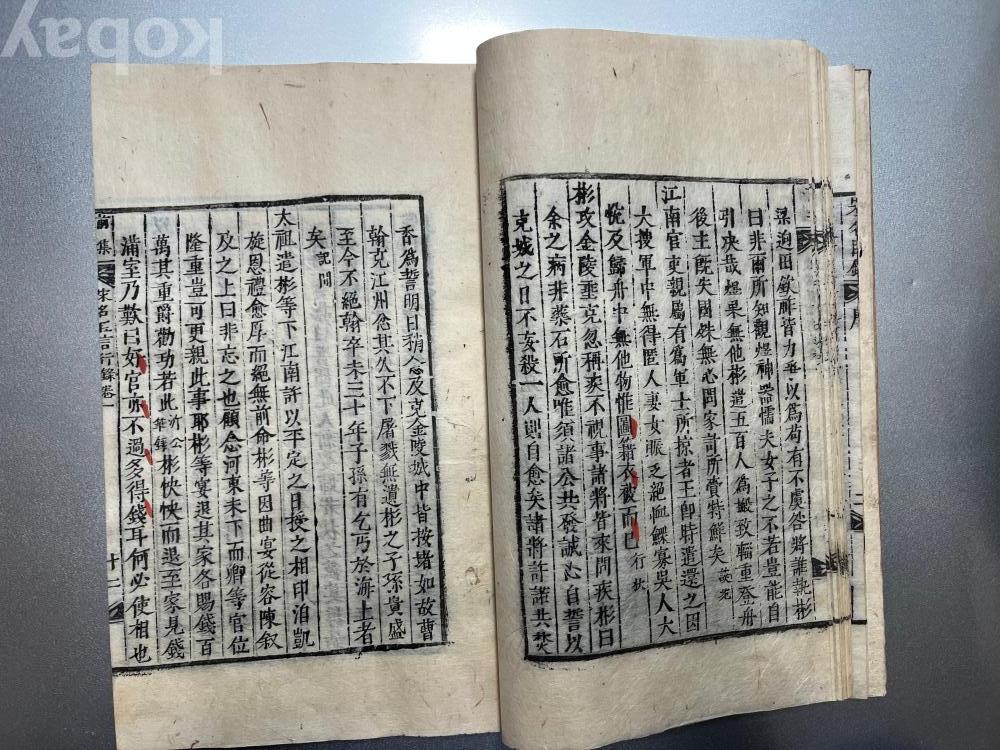 梁迥田欽祚皆力爭以爲苟有不虞咎將誰執彬
曰非爾所知觀煜神器懦夫女子之不若豈能自
引决哉煜果無他彬遣五百人爲搬致輜重登舟
後主旣失國殊無心問家計所賫特鮮矣 談苑
江南官吏親屬有爲軍士所掠者王卽時遣還之因
大搜軍中無得匿人妻女賑乏絕恤鰥寡吳人大
悅及歸舟中無他物惟圖籍衣被而已 行狀
彬攻金陵垂克忽稱疾不視事諸將皆來問疾彬曰
余之病非藥石所愈唯須諸公共發誠心自誓以
克城之日不妄殺一人則自愈矣諸將許諾共焚
香爲誓明日稍愈及克金陵城中皆按堵如故曹
翰克江州忿其久不下屠戮無遺彬之子孫貴盛
至今不絕翰卒未三十年子孫有乞丐於海上者
矣 記聞
太祖遣彬等下江南許以平定之日授之相印洎凱
旋恩禮愈厚而絕無前命彬等因曲宴從容陳叙
及之上曰非忘之也顧念河東未下而卿等官位
隆重豈可更親此事耶彬等宴退其家各賜錢百
萬其重爵勸功若此 沂公筆錄 彬怏怏而退至家見錢
滿室乃歎曰好官亦不過多得錢耳何必使相也
前集 宋名臣言行錄卷一 十二
kobay